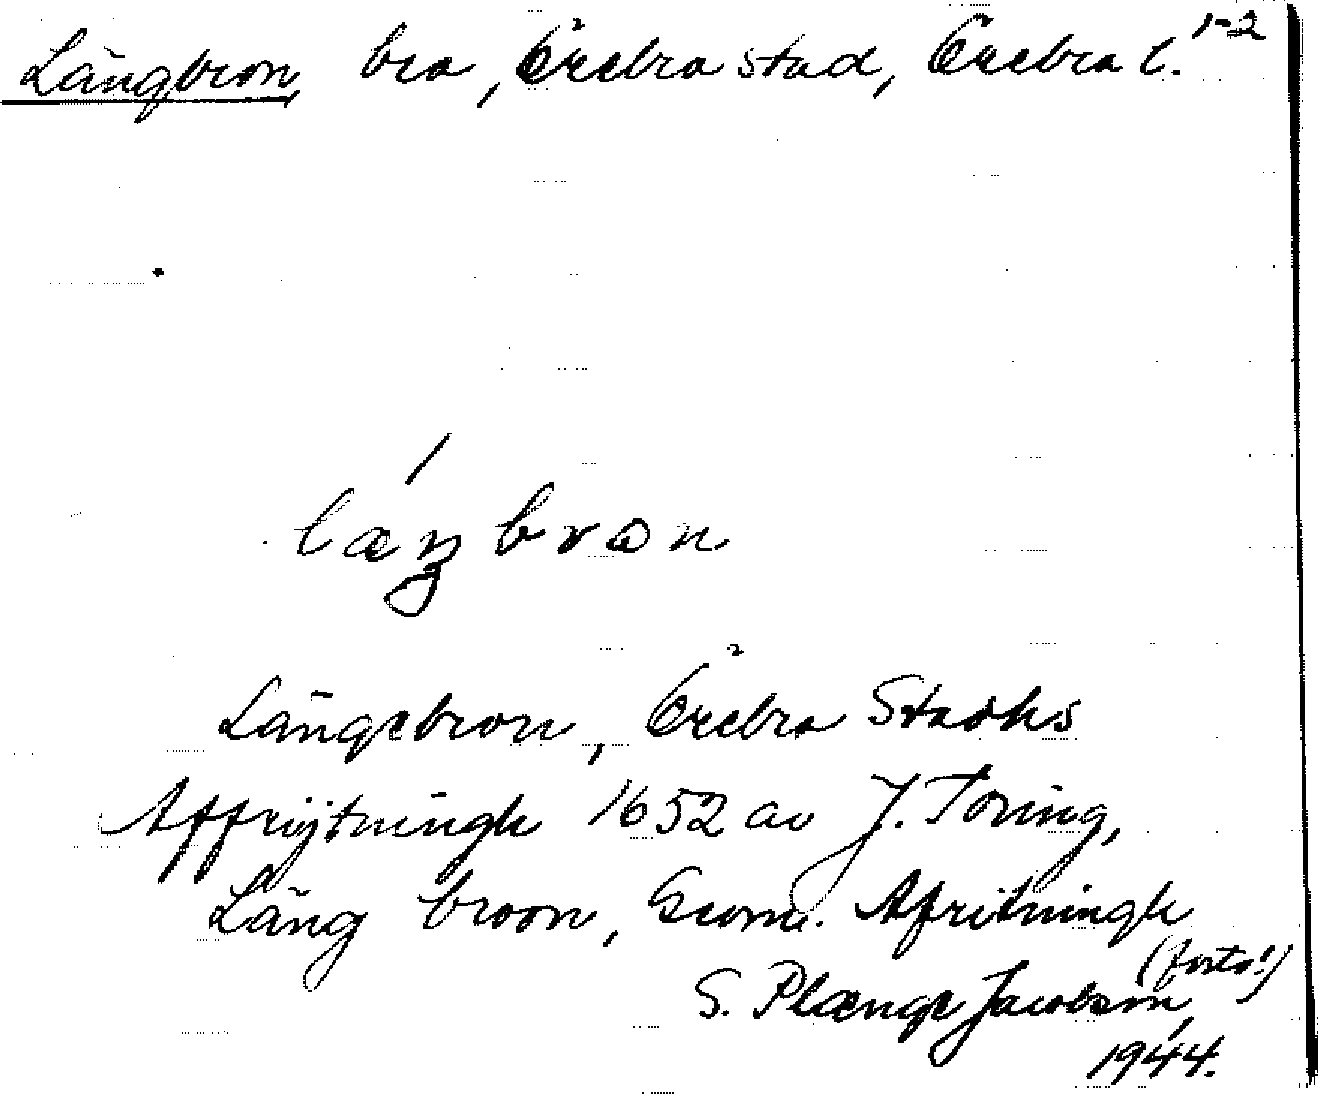 Långbron, bro, Örebro stad, Örebro l. 1-2
Långebron, Örebro Stadhs
Affrijtningh 1652 av J. Toring,
Lång broon, Geom. Afritningh
(forts!)
S. Plænge Jacobson,
1944.